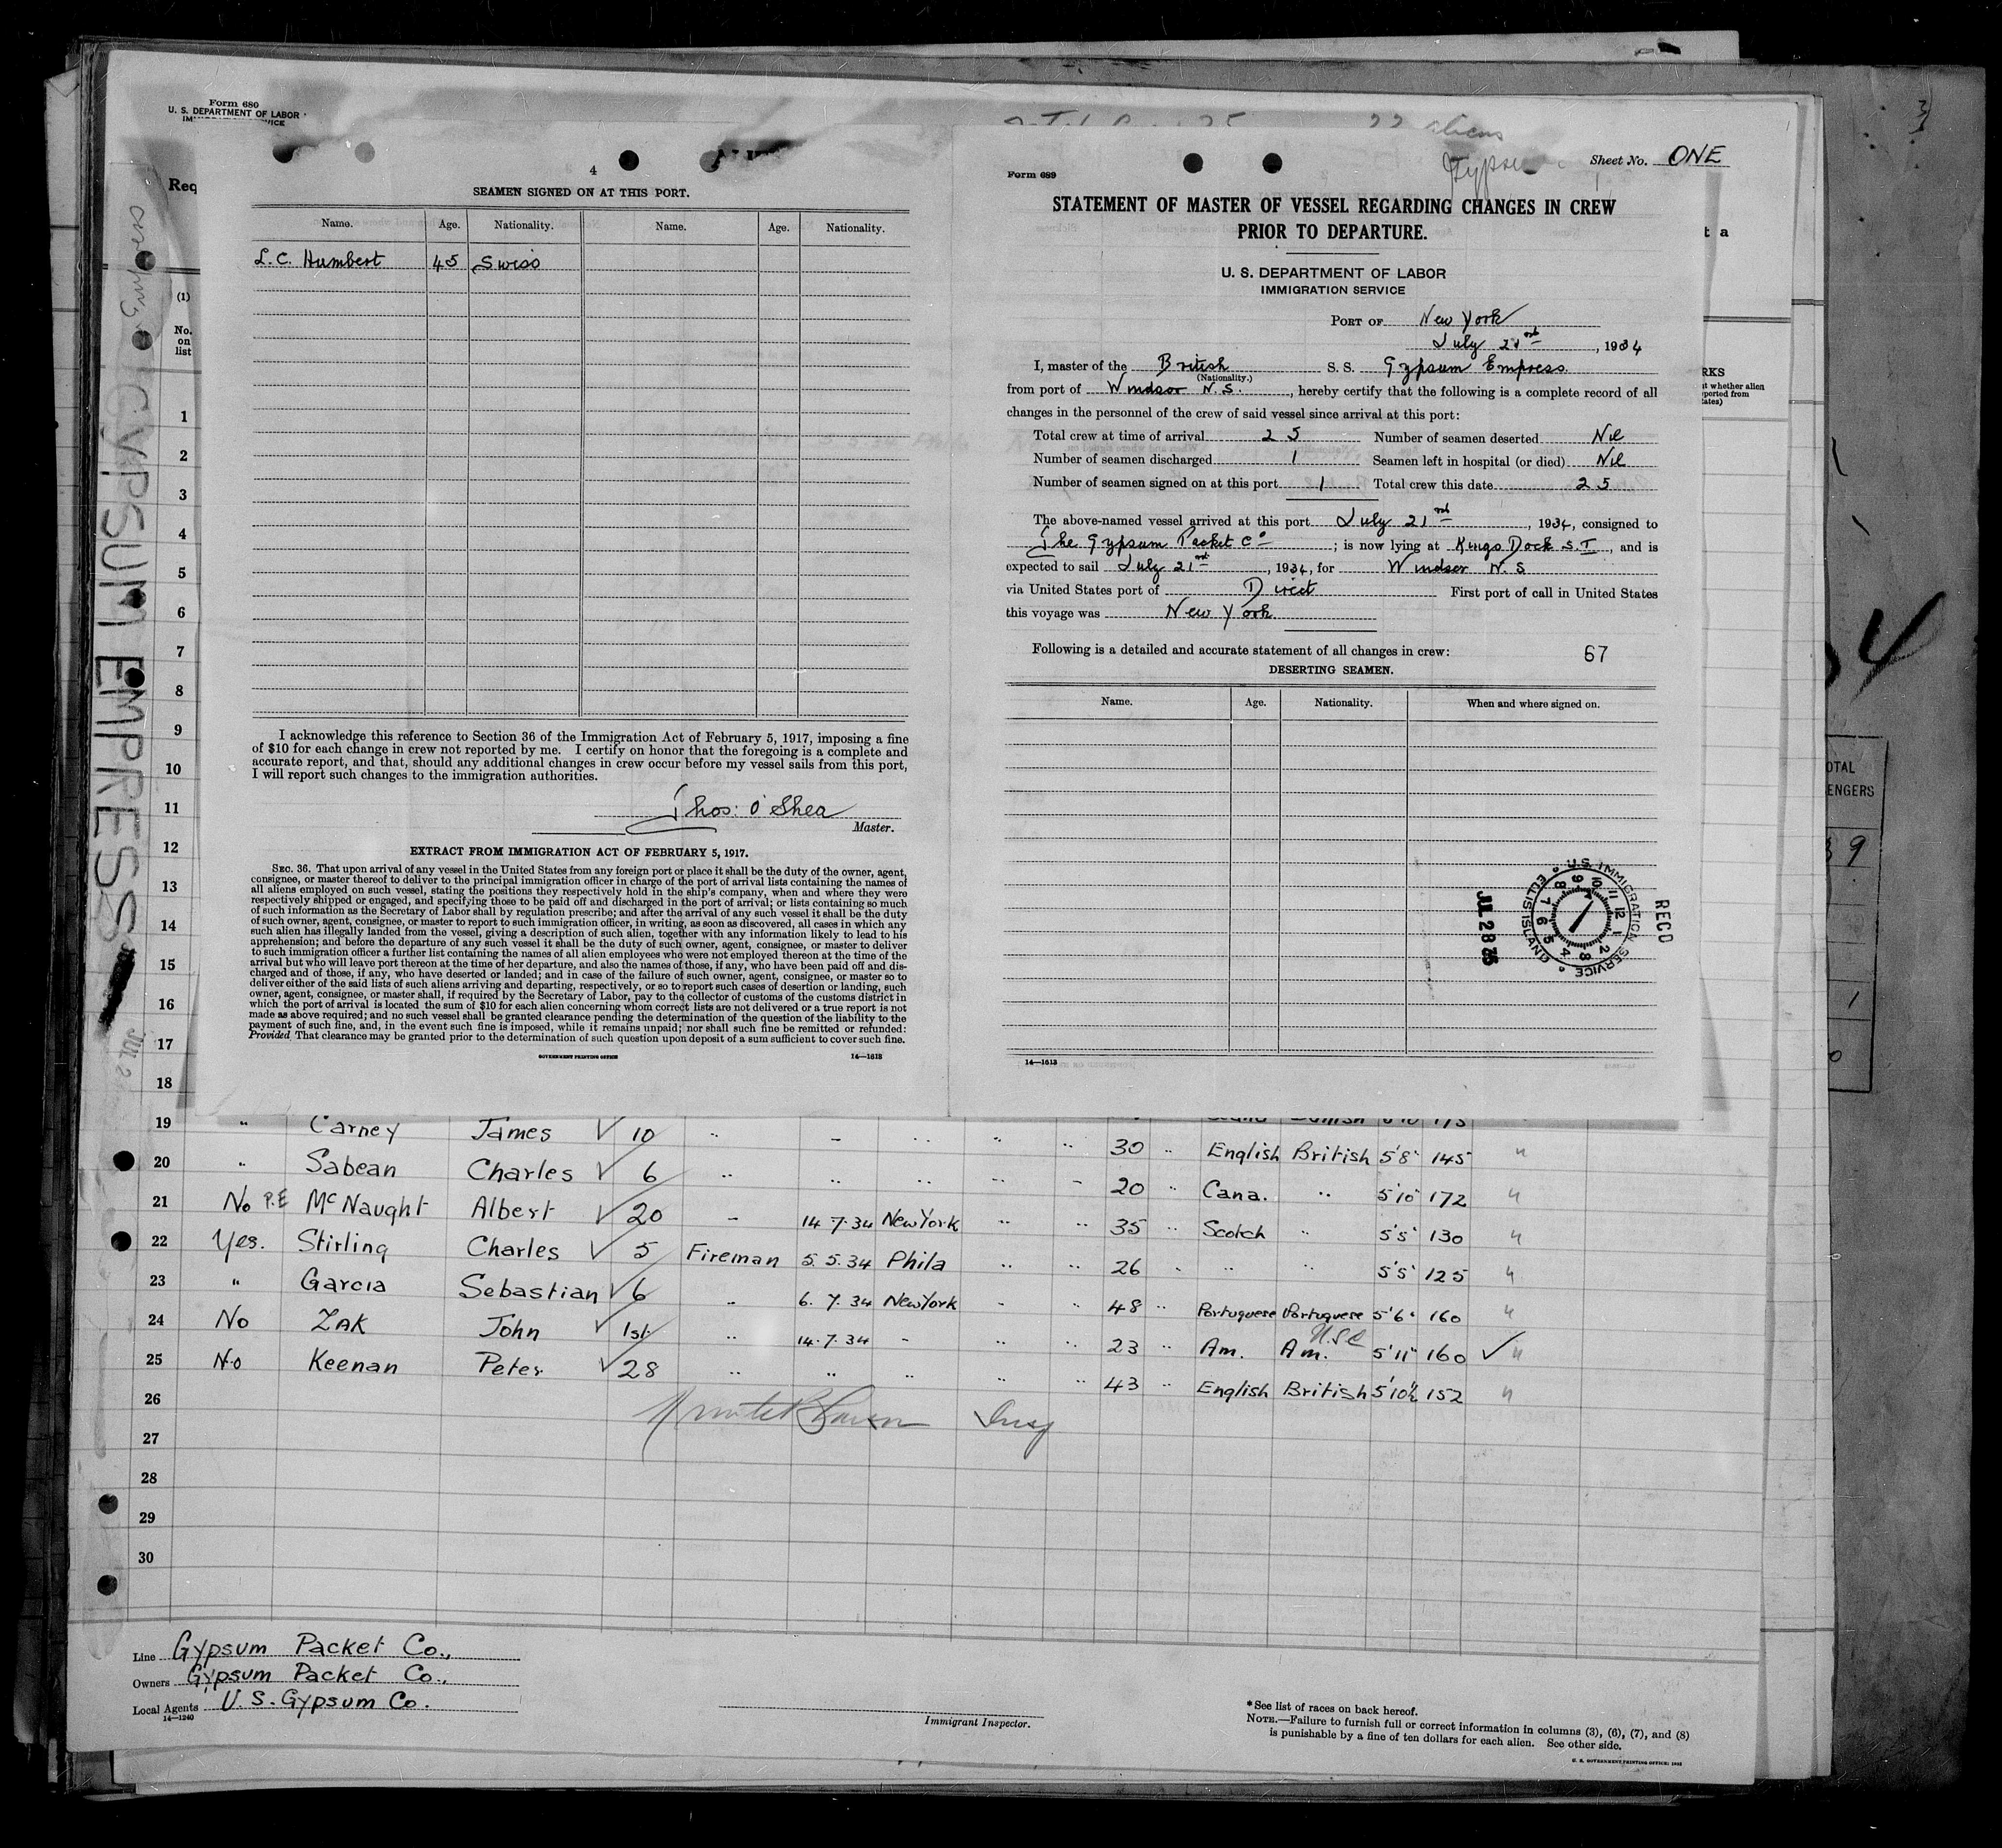 Form 680
U. S. DEPARTMENT OF LABOR
4
SEAMEN SIGNED ON AT THIS PORT.
Name. Age. Nationality. Name. Age. Nationality.
L. C. Humbert 45 Swiss
I acknowledge this reference to Section 36 of the Immigration Act of February 5, 1917, imposing a fine
of $10 for each change in crew not reported by me. I certify on honor that the foregoing is a complete and
accurate report, and that, should any additional changes in crew occur before my vessel sails from this port,
I will report such changes to the immigration authorities.
Thos: O'Shea
Master.
EXTRACT FROM IMMIGRATION ACT OF FEBRUARY 5, 1917.
SEC. 36. That upon arrival of any vessel in the United States from any foreign port or place it shall be the duty of the owner, agent,
consignee, or master thereof to deliver to the principal immigration officer in charge of the port of arrival lists containing the names of
all aliens employed on such vessel, stating the positions they respectively hold in the ship's company, when and where they were
respectively shipped or engaged, and specifying those to be paid off and discharged in the port of arrival; or lists containing so much
of such information as the Secretary of Labor shall by regulation prescribe; and after the arrival of any such vessel it shall be the duty
of such owner, agent, consignee, or master to report to such immigration officer, in writing, as soon as discovered, all cases in which any
such alien has illegally landed from the vessel, giving a description of such alien, together with any information likely to lead to his
apprehension; and before the departure of any such vessel it shall be the duty of such owner, agent, consignee, or master to deliver
to such immigration officer a further list containing the names of all alien employees who were not employed thereon at the time of the
arrival but who will leave port thereon at the time of her departure, and also the names of those, if any, who have been paid off and dis-
charged and of those, if any, who have deserted or landed; and in case of the failure of such owner, agent, consignee, or master so to
deliver either of the said lists of such aliens arriving and departing, respectively, or so to report such cases of desertion or landing, such
owner, agent, consignee, or master shall, if required by the Secretary of Labor, pay to the collector of customs of the customs district in
which the port of arrival is located the sum of $10 for each alien concerning whom correct lists are not delivered or a true report is not
made as above required; and no such vessel shall be granted clearance pending the determination of the question of the liability to the
payment of such fine, and, in the event such fine is imposed, while it remains unpaid; nor shall such fine be remitted or refunded:
Provided, That clearance may be granted prior to the determination of such question upon deposit of a sum sufficient to cover such fine.
GOVERNMENT PRINTING OFFICE 14—1613
22 aliens
Sheet No. ONE
Form 689
STATEMENT OF MASTER OF VESSEL REGARDING CHANGES IN CREW
PRIOR TO DEPARTURE.
U. S. DEPARTMENT OF LABOR
IMMIGRATION SERVICE
PORT OF New York
July 21st, 1934
I, master of the British S. S. Gypsum Empress
(Nationality.)
from port of Windsor N.S., hereby certify that the following is a complete record of all
changes in the personnel of the crew of said vessel since arrival at this port:
Total crew at time of arrival 25 Number of seamen deserted Nil
Number of seamen discharged 1 Seamen left in hospital (or died) Nil
Number of seamen signed on at this port 1 Total crew this date 25
The above-named vessel arrived at this port July 21st, 1934, consigned to
The Gypsum Packet Co; is now lying at Kings Dock S.I, and is
expected to sail July 21st, 1934, for Windsor N.S
via United States port of Direct First port of call in United States
this voyage was New York
Following is a detailed and accurate statement of all changes in crew: 67
DESERTING SEAMEN.
Name. Age. Nationality. When and where signed on.
RECD
U.S. IMMIGRATION SERVICE
ELLIS ISLAND
14—1613
GYPSUM EMPRESS
(1)
No.
on
list
1
2
3
4
5
6
7
8
9
10
11
12
13
14
15
16
17
18
19 " Carney James √ 10 " - " " " 30 " English British 5'8" 145 "
20 " Sabean Charles √ 6 " " " " - 20 " Cana. " 5'10" 172 "
21 No P.E McNaught Albert √ 20 - 14.7.34 New York " " 35 " Scotch " 5'5" 130 "
22 Yes. Stirling Charles √ 5 Fireman 5.5.34 Phila " " 26 " " " 5'5" 125 "
23 " Garcia Sebastian √ 6 " 6.7.34 New York - " 48 " Portuguese Portuguese 5'6" 160 "
24 No ZAK John √ 1st " 14.7.34 - " " 23 " Am. Am. 5'11" 160 √ "
25 No Keenan Peter √ 28 " " " " " 43 " English British 5'10½ 152 "
26
27
28
29
30
Line Gypsum Packet Co.,
Owners Gypsum Packet Co.,
Local Agents U.S. Gypsum Co.
14—1240
Immigrant Inspector.
*See list of races on back hereof.
NOTE.—Failure to furnish full or correct information in columns (3), (6), (7), and (8)
is punishable by a fine of ten dollars for each alien. See other side.
U. S. GOVERNMENT PRINTING OFFICE: